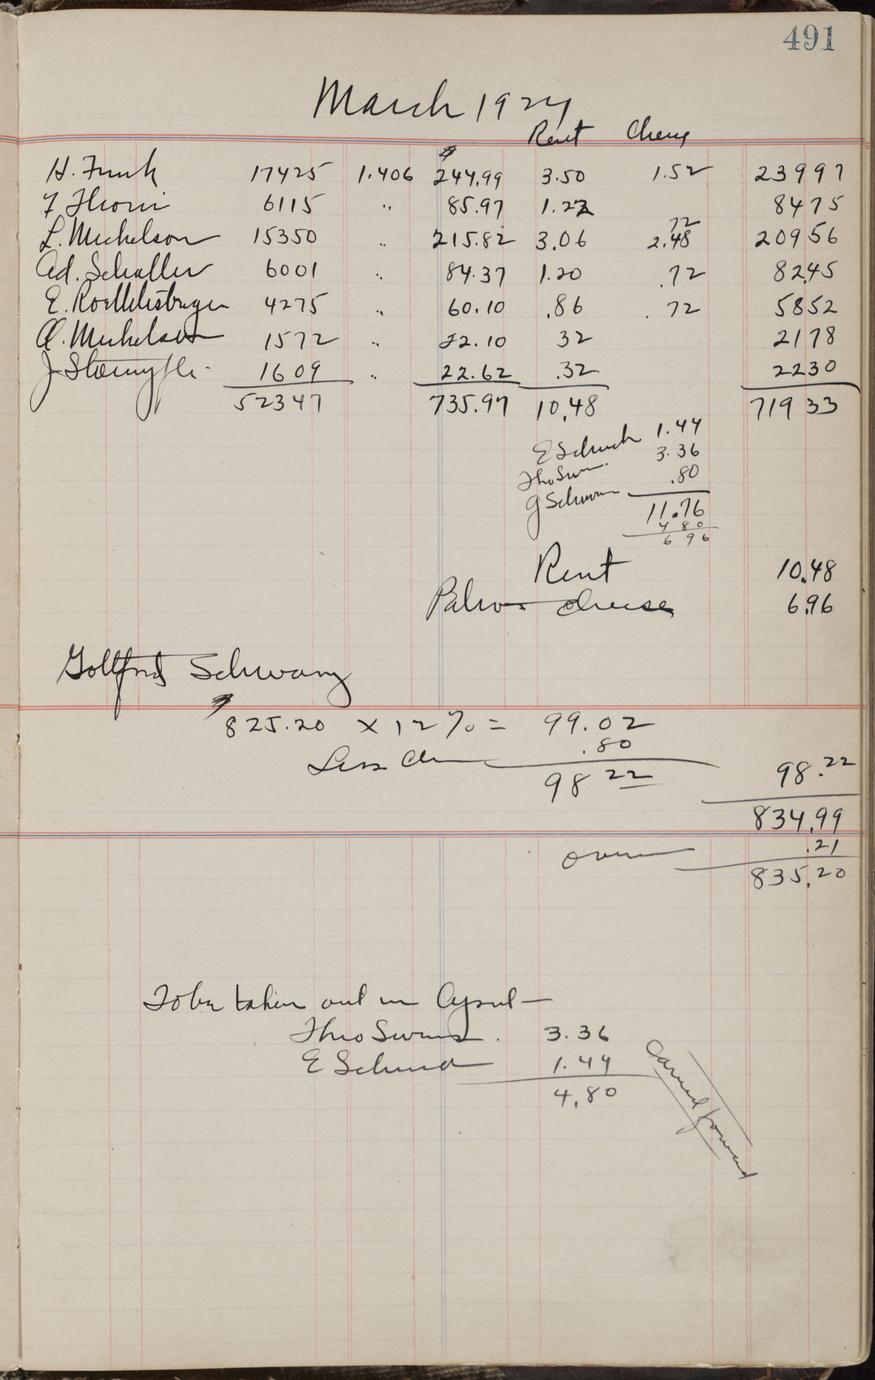 491
March 1924
Rent Chees
H. Funk 17425 1.406 $244.99 3.50 1.52 239 97
F Thoni 6115 " 85.97 1.22 84 75
72
L. Michelson 15350 " 215.82 3.06 2.48 209 56
Ad. Schaller 6001 " 84.37 1.20 .72 82 45
E. Roethlisberger 4275 " 60.10 .86 .72 58 52
A. Michelson 1572 " 22.10 32 21 78
J 1609 " 22.62 .32 22 30
52347 735.97 10.48 719 33
E Schuch 1.44
Theo Swin 3.36
G Schwan .80
11.76
4 80
6 96
Rent 10.48
cheese 6.96
Gottfried Schwarz
$825.20 × 12% = 99.02
.80
Less Ch 98 22 98.22
834.99
over .21
835.20
To be taken out in April—
Theo Swiss. 3.36
E Schuch 1.44
4.80
Carried forward